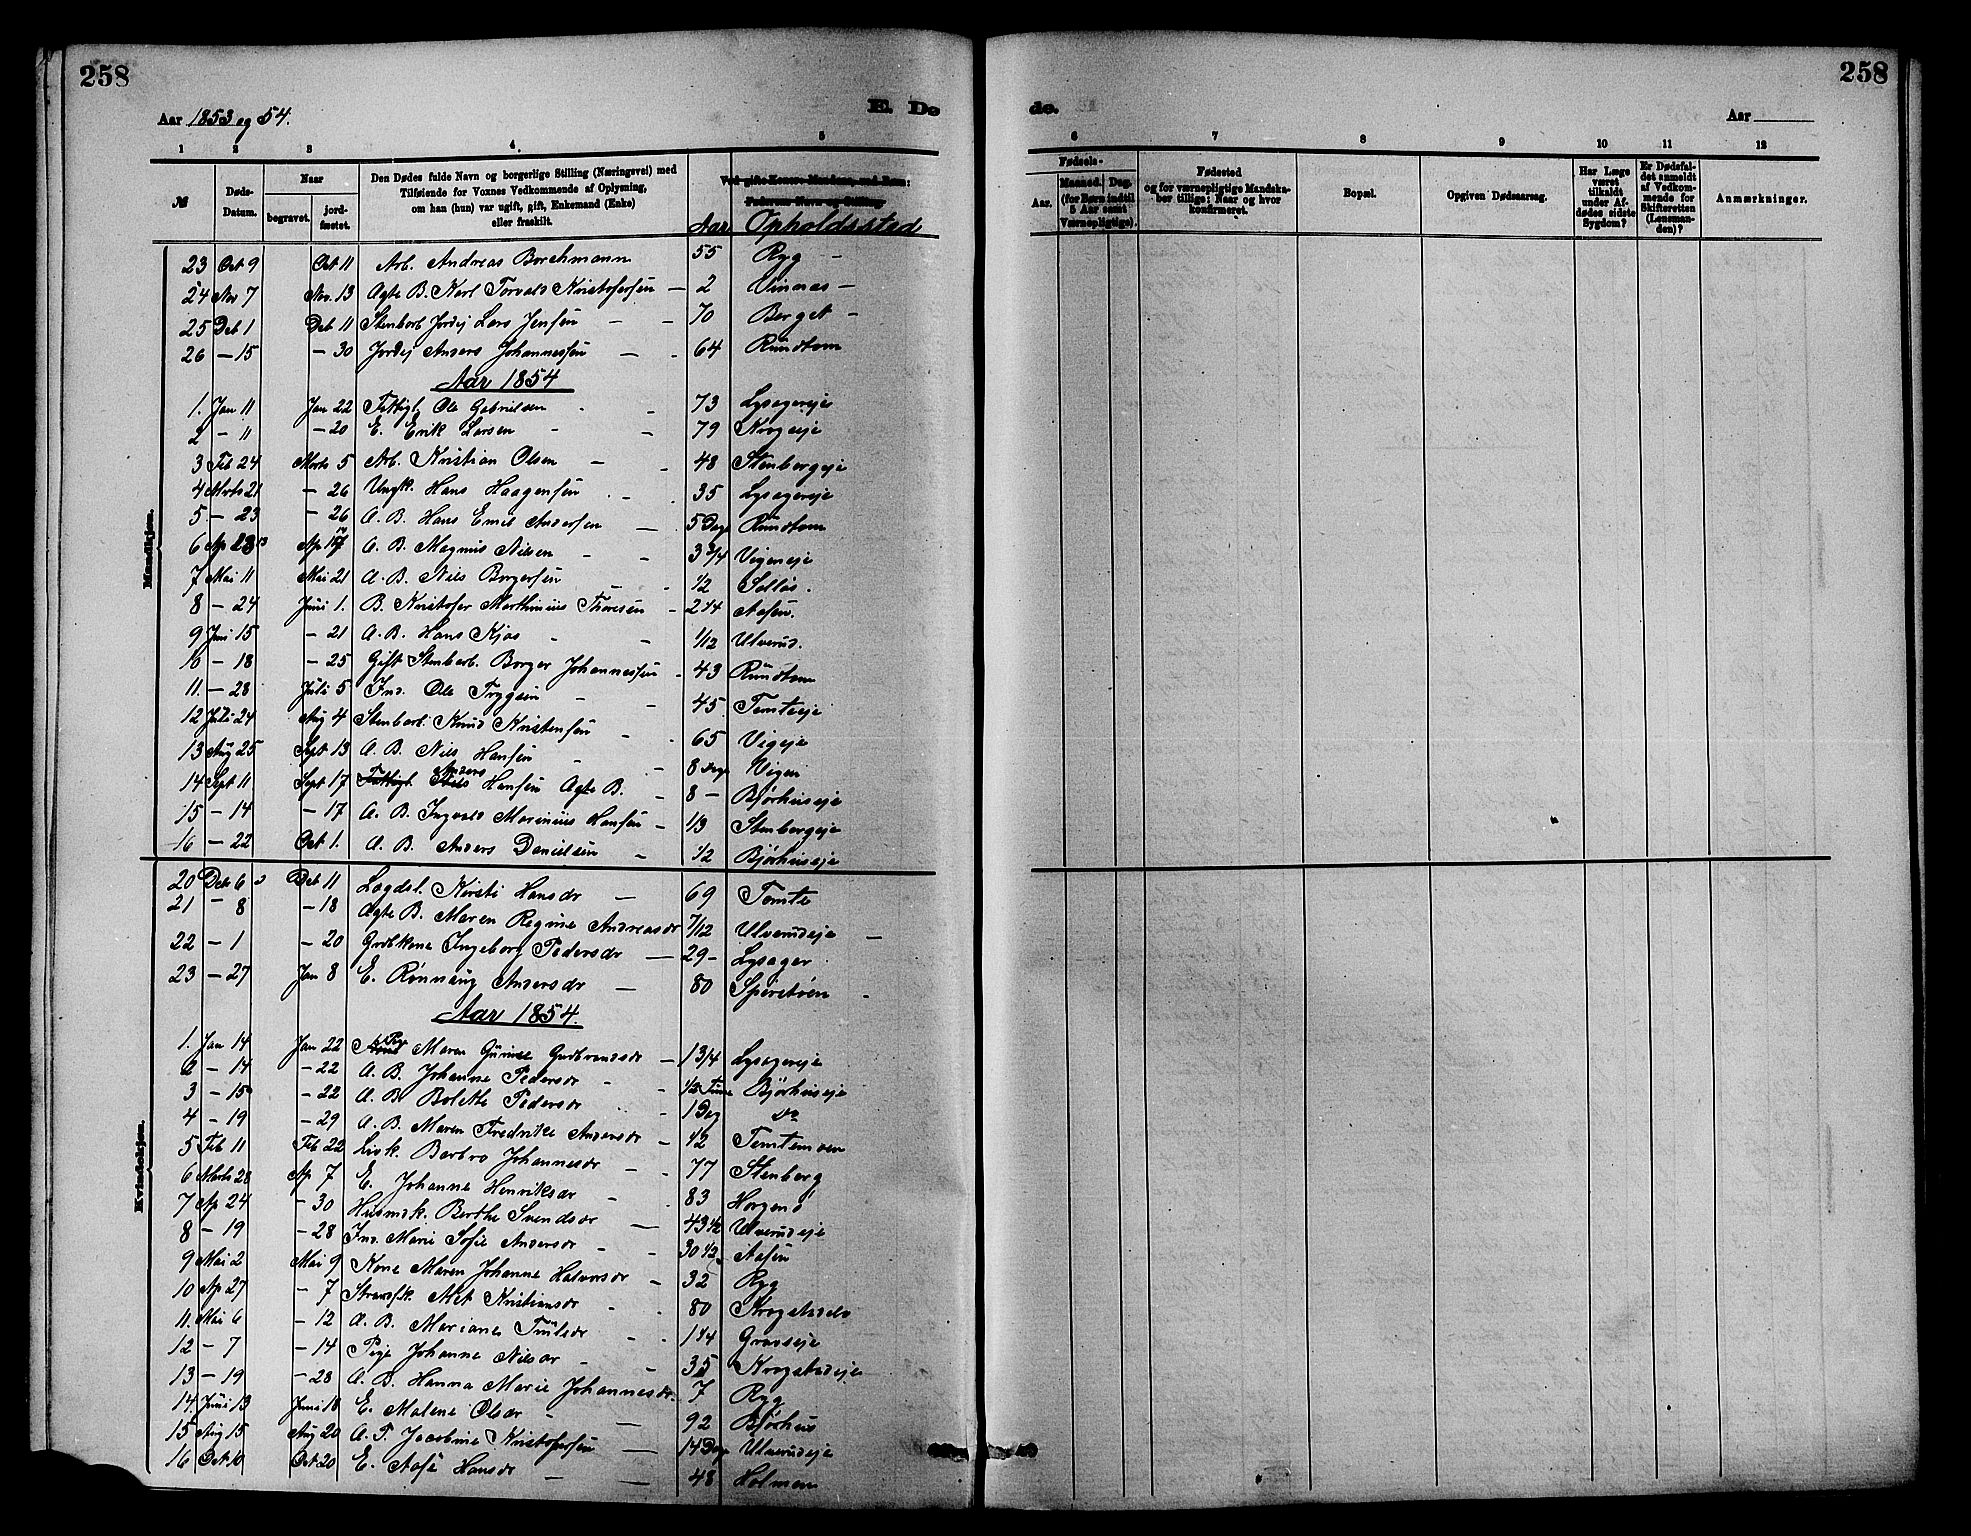 258
258
Aar 1853 og 54.
E. De
de.
Aar
1 2 3 4. 5 6 7 8 9 10 11 12
№
Døds-Datum.
Naar
begravet.
jordfæstet.
Den Dødes fulde Navn og borgerlige Stilling (Næringsvei) med Tilføiende for Voxnes Vedkommende af Oplysning, om han (hun) var ugift, gift, Enkemand (Enke) eller fraskilt.
Aar Opholdssted
Fødsels-
Aar.
Maaned. Dag.
(for Børn indtil 5 Aar samt Værnepligtige).
Fødested og for værnepligtige Mandskaber tillige; Naar og hvor konfirmeret.
Bopæl.
Opgiven Dødsaarsag.
Har Læge været tilkaldt under Afdødes sidste Sygdom?
Er Dødsfaldet anmeldt af Vedkommende for Skifteretten (Lensmanden)?
Anmærkninger.
Mandkjøn.
23 Oct 9 Oct 11 Arb. Andreas Borchmann 55 Ryg
24 Nov 7 Nov. 13 Ægte B. Karl Torvald Kristofersen 2 Vinnas
25 Deb 1 Deb 11 Stenborb Jordej Lars Jensen 70 Berget
26 - 15 - 30 Jordej Anders Johannessen 64 Rundtom
Aar 1854
1. Jan 11 Jan 22 Fattigl. Ole Gabrielsen 73 Lysagereje
2 - 11 - 20 E. Erik Larsen 79 Krogeje
3 Feb 24 Marts 5 Arb. Kristian Olsen 48 Stenbergeje
4 Marts 21 - 26 Ungk. Hans Haagensen 35 Lysagereje
5 - 23 - 26 A. B. Hans Emil Andersen 5 Dage Rundtom
6 Ap 13 Ap 17 A. B. Magnus Nilsen 3 3/4 Vigeneje
7 Mai 11 Mai 21 A. B. Nils Borgersen 1/2 Solløs.
8 - 24 Juni 1. B. Kristofer Marthinius Thoresen 2 1/4 Aasen.
9 Juni 15 - 21 A. B. Hans Kjos 1/12 Ulverud.
10 - 18 - 25 Gift Stenborb. Borger Johannessen 43 Rundtom
11. - 28 Juli 5 Ind. Ole Trygsen 45 Tomteeje
12 Juli 24 Aug 4 Stenborb. Knud Kristensen 65 Vigeje
13 Aug 25 Sept 13 A. B. Nils Hansen 8 Dage Vigen
14 Sept 11 Sept 17 Anders Hansen Ægte B. 8 - Bjørhuseje
15 - 14 - 17 A. B. Ingvald Marinius Hansen 1/3 Stenbergeje
16 - 22 Oct 1. A. B. Anders Danielsen 1/2 Bjørhuseje
Kvindekjøn.
20 Deb 6 Deb 11 Lagdsl. Kirsti Hansdr 69 Tomte
21 - 8 - 18 Ægte B. Maren Regine Andreasdr 7/12 Ulverudeje
22 - 1 - 20 Grdbkone Ingeborg Pedersdr 29 - Lysager
23 - 27 Jan 8 E. Rønnaug Andersdr 80 Sperstøen
Aar 1854.
1. Jan 14 Jan 22 Pige Maren Gurine Gudbrandsdr 13/4 Lysagereje
2 - 14 - 22 A. B. Johanne Pedersdr 1/2 Time Bjørhuseje
3 - 15 - 22 A. B. Bolette Pedersdr 1 Dag do
4 - 19 - 29 A. B. Maren Fredrike Andersdr 1/2 Tomtemoen
5 Feb 11 Feb 22 Livk. Barbro Johannesdr 77 Stenberg
6 Marts 28 Ap 7 E. Johanne Henriksdr 83 Horgen
7 Ap 24 - 30 Husmsk. Berthe Svendsdr 43 1/2 Ulverudeje
8 - 19 - 28 Ind. Marie Sofie Andersdr 30 1/2 Aasen
9 Mai 2 Mai 9 Kone Maren Johanne Halvorsdr 32 Ryg
10 Ap 27 - 7 Strandsk. Met Kristiansdr 80 Krogstadelv
11. Mai 6 - 12 A. B. Mariane Truls dr 1 1/4 Gravseje
12 - 7 - 14 Pige Johanne Nilsdr 35 Krogstadeje
13 - 19 - 28 A. B. Hanna Marie Johannesdr 7 Ryg
14. Juni 13 Juni 18 E. Malene Olsdr 92 Bjørhus
15 Aug 15 Aug 20 A. P. Jacobine Kristofersen 14 Dage Ulverudeje
16 Oct 10 Oct 20 E. Aase Hansdr 48 Holmen